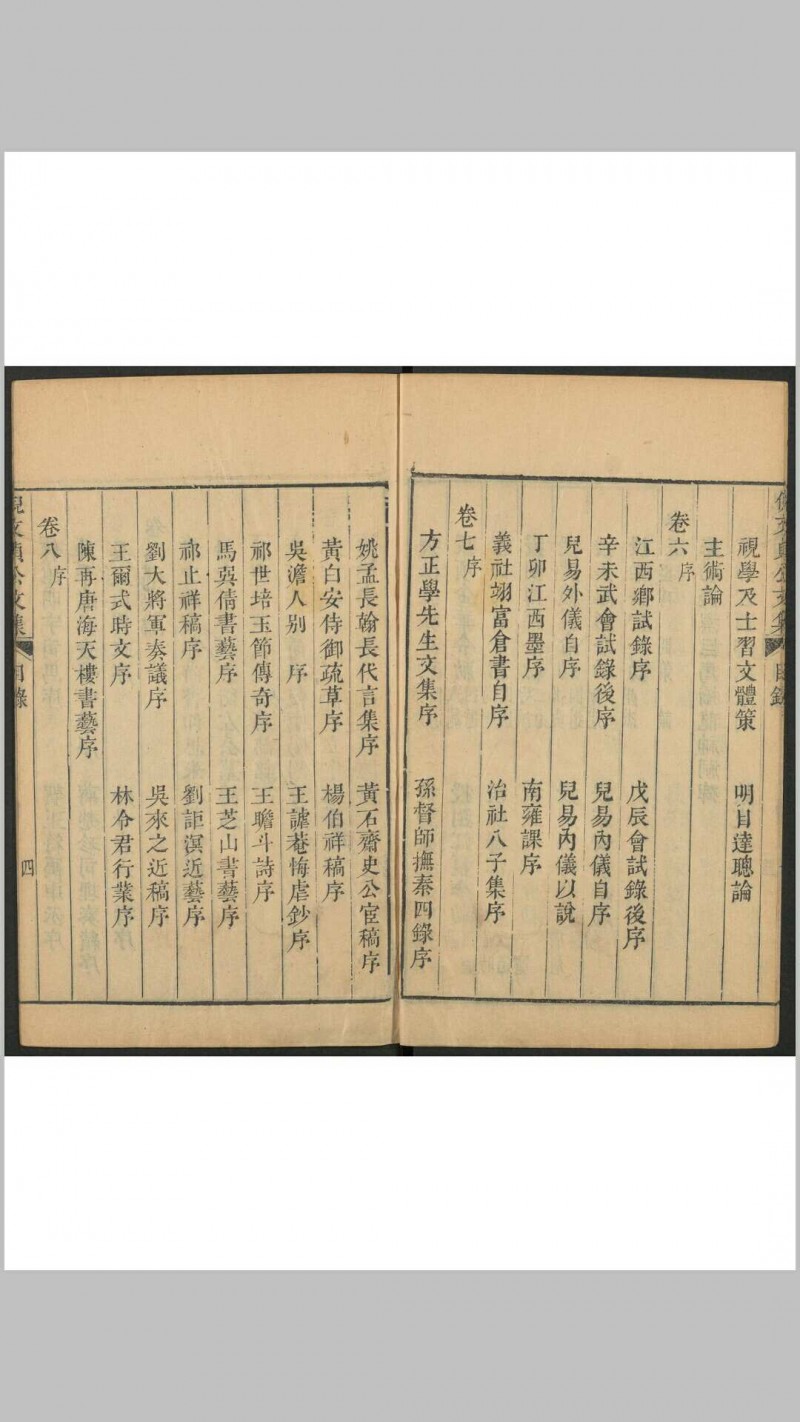 倪文貞公文集 目錄
視學及士習文體策 明目達聰論
主術論
卷六 序
江西鄉試錄序 戊辰會試錄後序
辛未武會試錄後序 兒易內儀自序
兒易外儀自序 兒易內儀以說
丁卯江西墨序 南雍課序
義社翊富倉書自序 治社八子集序
卷七 序
方正學先生文集序 孫督師撫秦四錄序
姚孟長翰長代言集序 黃石齋史公宦稿序
黃白安侍御疏草序 楊伯祥稿序
吳澹人別 序 王謔菴悔虐鈔序
祁世培玉節傳奇序 王瞻斗詩序
馬巽倩書藝序 王芝山書藝序
祁止祥稿序 劉詎溟近藝序
劉大將軍奏議序 吳來之近稿序
王爾式時文序 林令君行業序
陳再唐海天樓書藝序
卷八 序
倪文貞公文集 目錄 四